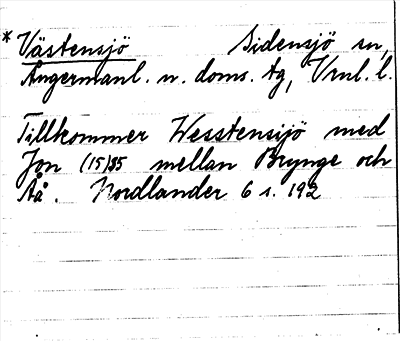 * Västensjö Sidensjö sn,
Ångermanl. n. doms. tg, Vrnl. l.
Tillkommer Wesstensijö med
Jon (15)35 mellan Brynge och
Åå. Nordlander 6 s. 192